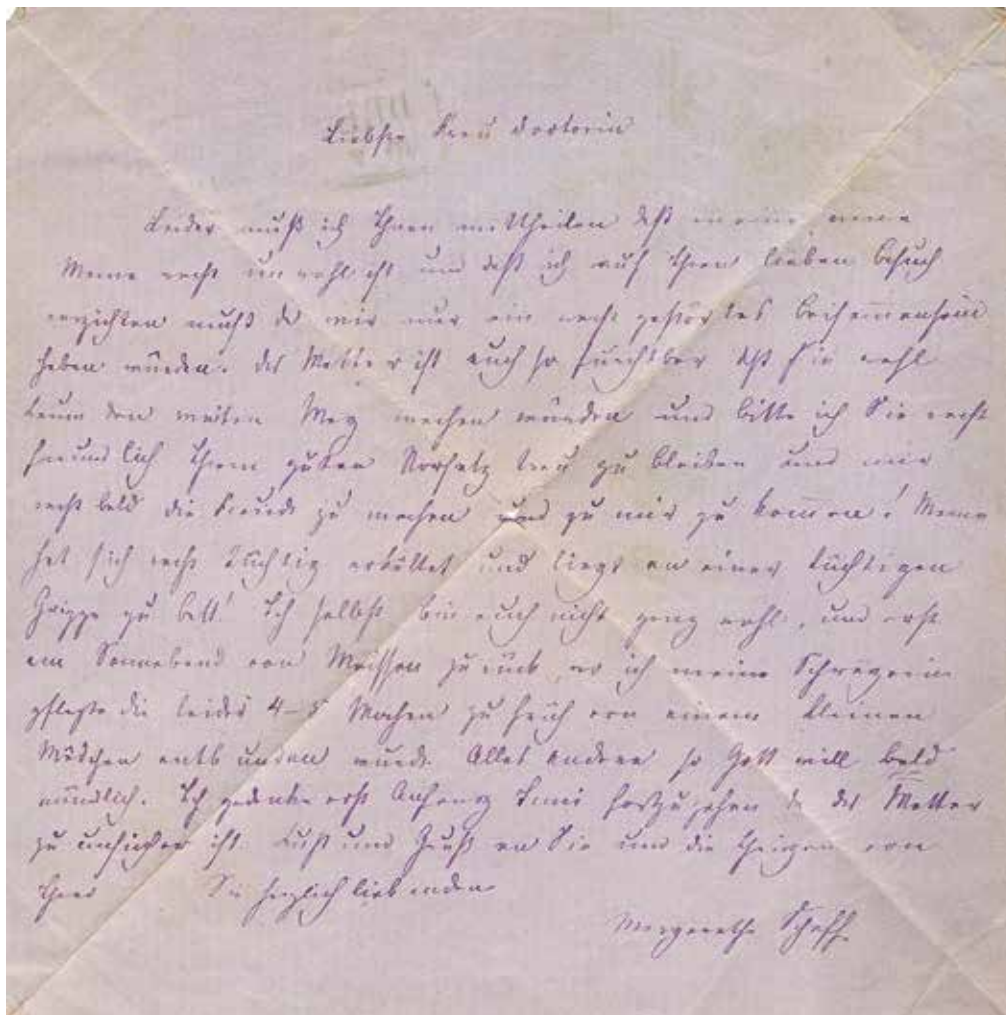 Liebste Frau Doctorin
Leider muß ich Ihnen mittheilen daß meine arme
Mama recht unwohl ist und daß ich auf Ihren lieben Besuch
verzichten muß da wir nur ein recht gestörtes Beisammensein
haben würden. Das Wetter ist auch so furchtbar daß Sie wohl
kaum den weiten Weg machen würden und bitte ich Sie recht
freundlich Ihrem guten Vorsatz treu zu bleiben und mir
recht bald die Freude zu machen und zu mir zu kommen! Mama
hat sich recht tüchtig erkältet und liegt an einer tüchtigen
Grippe zu Bett! Ich selbst bin auch nicht ganz wohl, und erst
am Sonnabend von Meissen zurück, wo ich meine Schwägerin
pflegte die leider 4-5 Wochen zu früh von einem kleinen
Mädchen entbunden wurde. Alles Andere so Gott will bald
mündlich. Ich gedenke erst Anfang Juni fortzugehen da das Wetter
zu unsicher ist. Kuß und Gruß an Sie und die Ihrigen von
Ihrer Sie herzlich liebenden
Margarethe Schaff